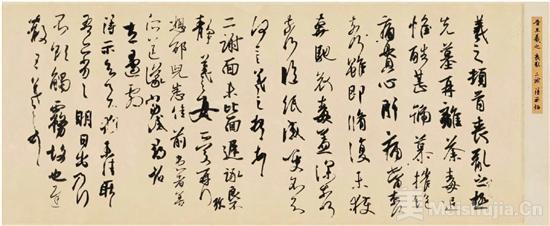 羲之頓首喪亂之極
先墓再離荼毒追
惟酷甚號慕摧絕
痛貫心肝痛當奈何
奈何雖即脩復未獲
奔馳哀毒益深奈何
奈何臨紙感哽不知
何言羲之頓首頓首
二謝面未比面遲詠良不
靜羲之女愛再拜
想邵兒悉佳前患者善
所送議當試尋省
左邊劇
得示知足下猶未佳耿耿
吾亦劣劣明日出乃行
不欲觸霧故也遲
散王羲之頓首
晉王羲之 喪亂 二謝 得示帖
美 Meishujia.Cn